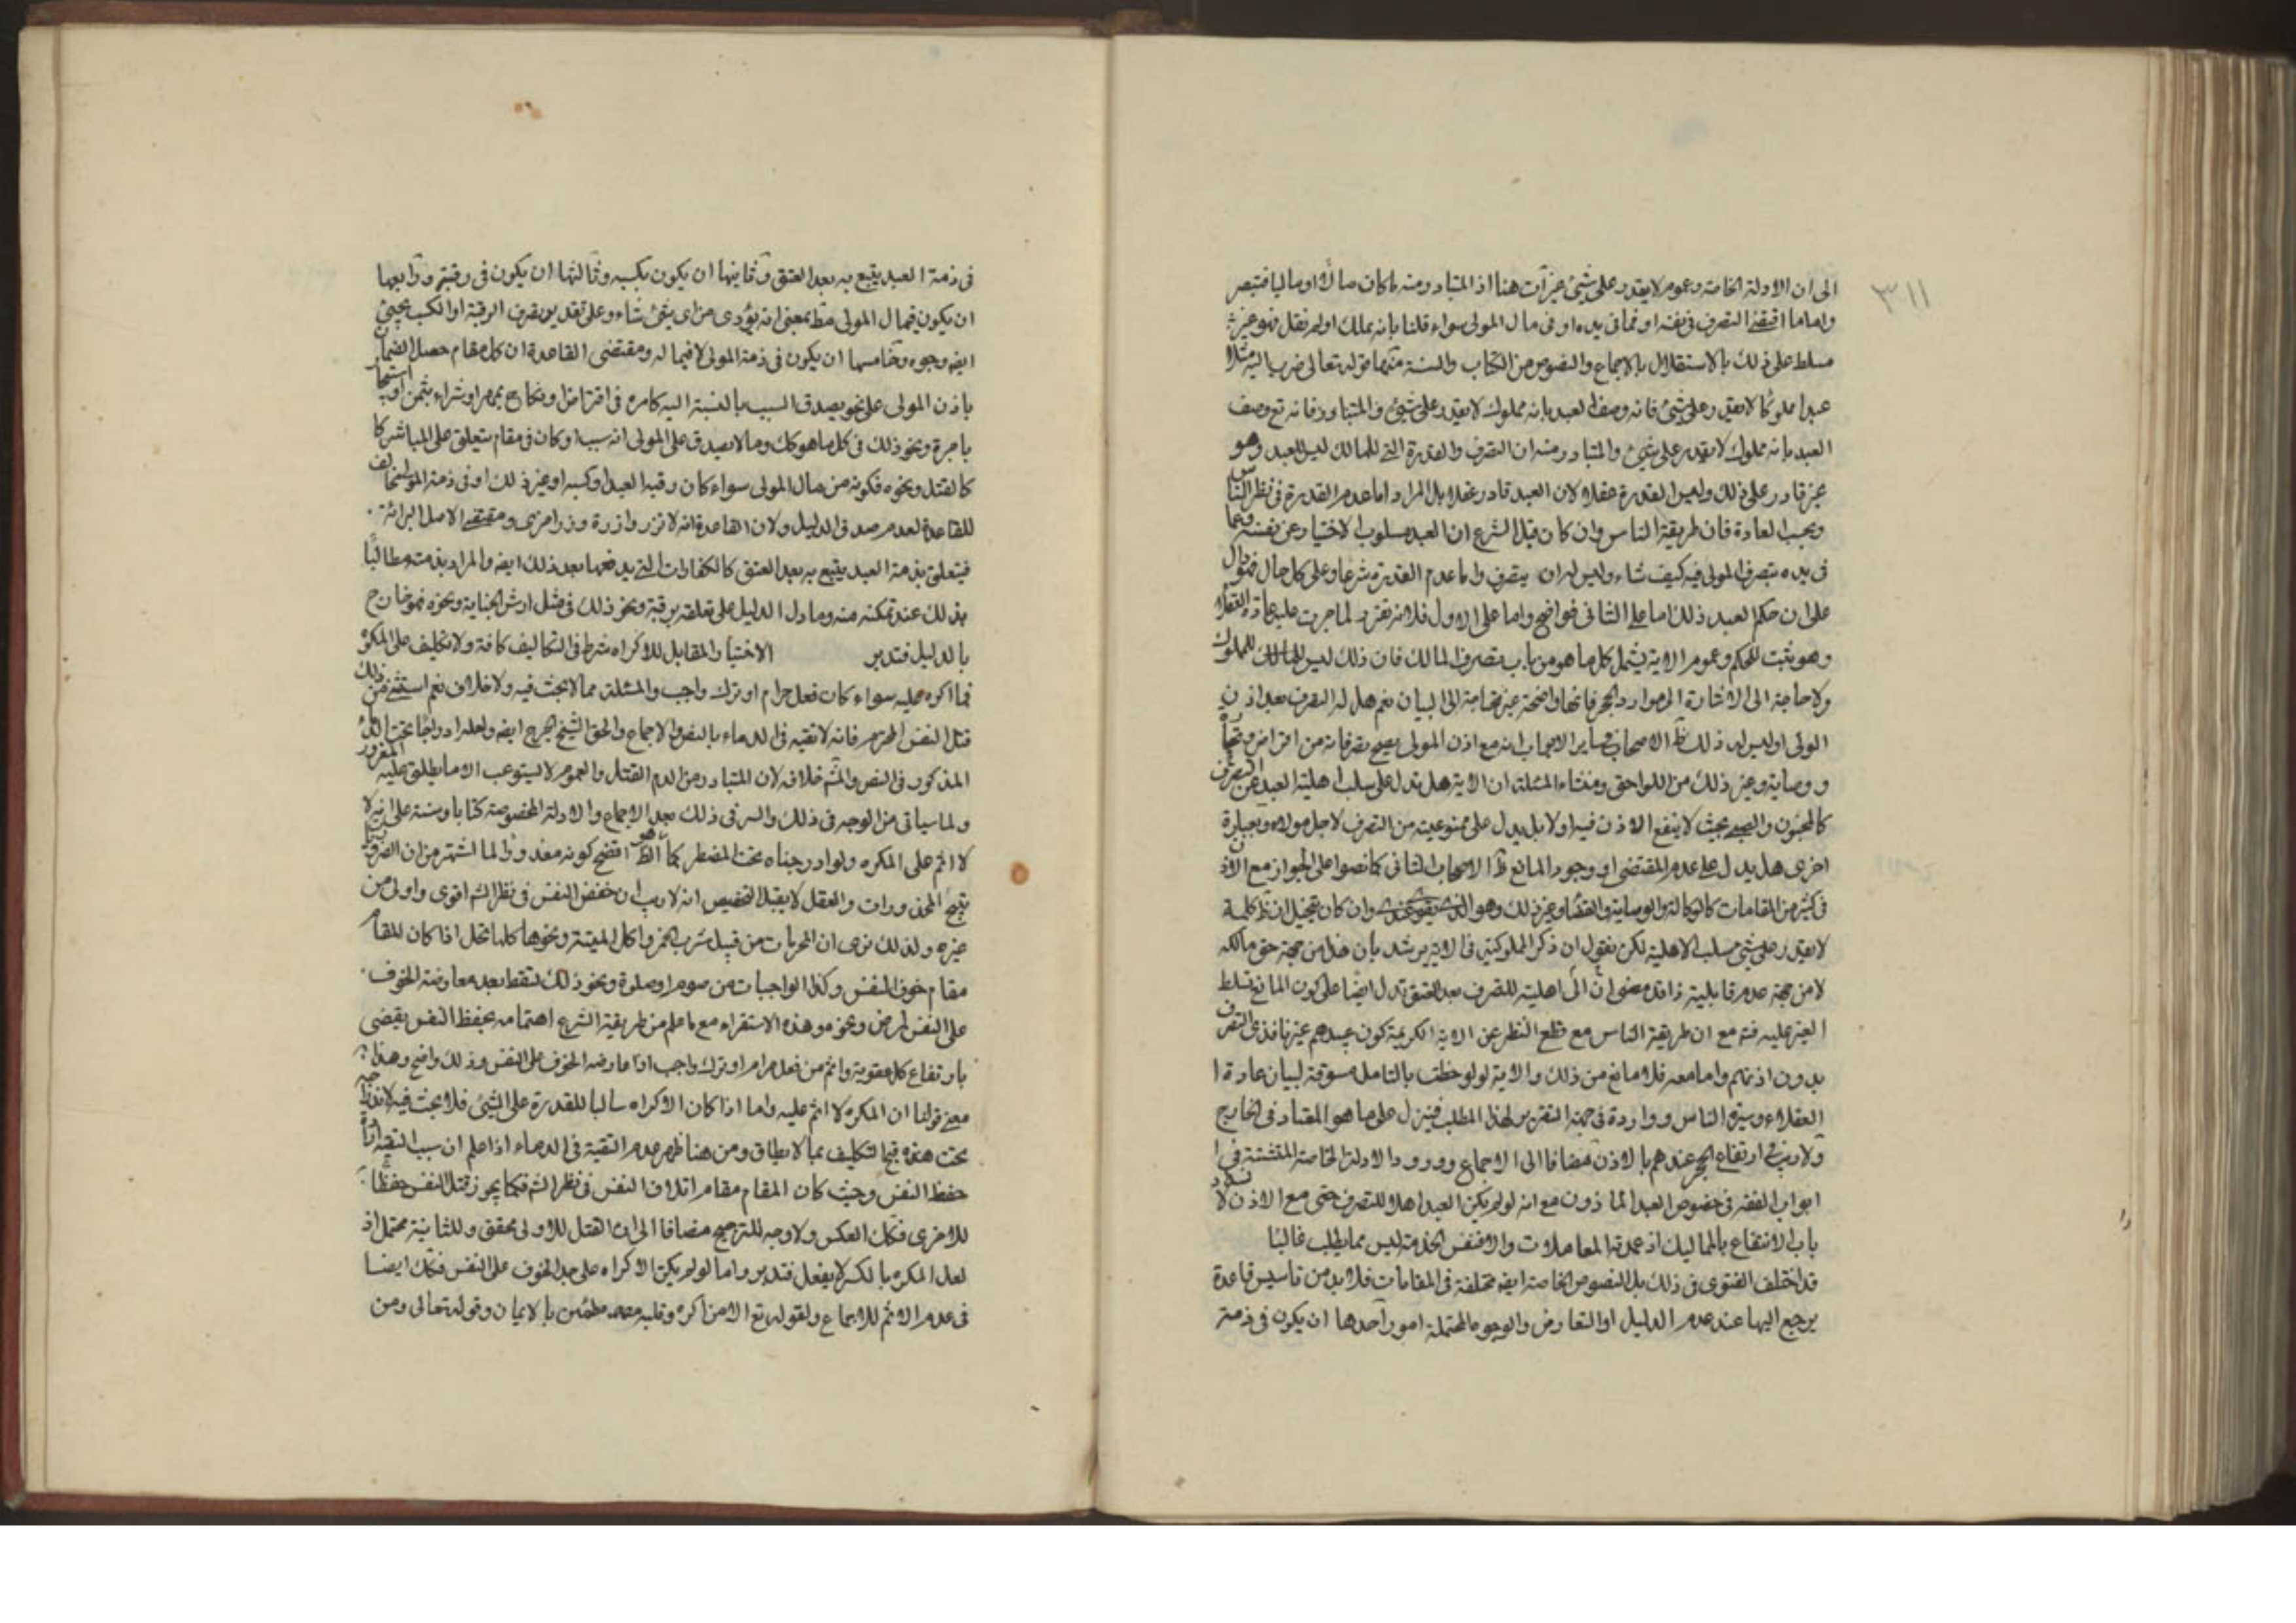 ٣١١
الى ان الادلة الخاصة وعموم لا يقدر على شيئ غير آت هنا اذ المتبادر منه ما كان مالا او ماليا فتبصر
واما ما اقتضى التصرف فى نفسه او فيما فى يده او فى مال المولى سواء قلنا بانه يملك او لم نقل فهو غير
مسلط على ذلك بالاستقلال بالاجماع والنصوص من الكتاب والسنة منها قوله تعالى ضرب الله مثلا
عبدا مملوكا لا يقدر على شيئ فانه وصف العبد بانه مملوك لا يقدر على شيئ والمتبادر فانه تع وصف
العبد بانه مملوك لا يقدر على شيئ والمتبادر منه ان التصرف والقدرة التى للمالك ليس للعبد وهو
غير قادر على ذلك وليس القدرة عقلا لان العبد قادر عقلا بل المراد اما عدم القدرة فى نظر الناس
وبحسب العادة فان طريقة الناس وان كان قبل الشرع ان العبد مسلوب الاختيار عن نفسه وفيما
فى يده يتصرف المولى فيه كيف شاء وليس له ان يتصرف واما عدم القدرة شرعا وعلى كل حال فهو دال
على ان حكم العبد ذلك اما على الثانى فواضح واما على الاول فلانه تقرير لما جرت عليه عادة العقلاء
وهو مثبت للحكم وعموم الاية يشمل كل ما هو من باب تصرف المالك فان ذلك ليس للمالك للمملوك
ولا حاجة الى الاشارة الى موارد الحجر فانها واضحة غير محتاجة الى البيان نعم هل له التصرف بعد اذن
المولى او ليس له ذلك ظ الاصحاب فى ساير الابواب انه مع اذن المولى يصح تصرفاته من اقراض
ووصاية وغير ذلك من اللواحق ومنشاء المسئلة ان الاية هل تدل على سلب اهلية العبد عن التصرف
كالمجنون والصبى بحيث لا ينفع الاذن فيه او لا بل يدل على ممنوعيته من التصرف لاجل مولاه وبعبارة
اخرى هل يدل على عدم المقتضى او وجود المانع ظ الاصحاب الثانى كما نصوا على الجواز مع الاذن
فى كثير من المقامات كالوكالة والوصاية والقضاء وغير ذلك وهو الذى يقوى عندى وان كان تخيل ان ظ كلمة
لا يقدر على شيئ سلب الاهلية لكن نقول ان ذكر المملوكية فى الاية يرشد بان هذا من جهة حق مالكه
لا من جهة عدم قابلية ذاته مضافا الى ان اهليته للتصرف بعد العتق تدل ايضا على كون المانع تسلط
الغير عليه فته مع ان طريقة الناس مع قطع النظر عن الاية الكريمة كون عبيدهم غير نافذى التصرف
بدون اذنهم واما معه فلا مانع من ذلك والاية لو لوحظت بالتامل مسوقة لبيان عادة ا
العقلاء وسيرة الناس وواردة فى جهة التقرير لهذا المطلب فينزل على ما هو المعتاد فى الخارج
ولا ريب فى ارتفاع الحجر عندهم بالاذن مضافا الى الاجماع وورود الادلة الخاصة المتشتتة فى ا
ابواب الفقه فى خصوص العبد المأذون مع انه لو لم يكن العبد اهلا للتصرف حتى مع الاذن لانسد
باب الانتفاع بالمماليك اذ عمدة المعاملات والا فنفس الخدمة ليس مما يطلب غالبا
قد اختلف الفتوى فى ذلك بل النصوص الخاصة ايضه مختلفة فى المقامات فلا بد من تاسيس قاعدة
يرجع اليها عند عدم الدليل او التعارض والوجوه المحتملة امور آحدها ان يكون فى ذمته
فى ذمة العبد يتبع به بعد العتق وثانيها ان يكون بكسبه وثالثها ان يكون فى رقبته ورابعها
ان يكون فى مال المولى مط بمعنى انه يؤدى من اى شيئ شاء وعلى تقدير تصرف الرقبة او الكسب يجيئ
ايضه وجوه وخامسها ان يكون فى ذمة المولى لا فيما له ومقتضى القاعدة ان كل مقام حصل الضمان
باذن المولى على نحو يصدق السبب بالنسبة اليه كامره فى اقتراض او نكاح بمهر او شراء بثمن او استيجار
باجرة ونحو ذلك فى كل ما هو كك وما لا يصدق على المولى انه سبب او كان فى مقام يتعلق على المباشر كا
كالقتل ونحوه فكونه من مال المولى سواء كان رقبة العبد او كسبه او غير ذلك او فى ذمة المولى مخالف
للقاعدة لعدم صدق الدليل ولان القاعدة انه لا تزر وازرة وزر اخرى ومقتضى الاصل البرائة
فيتعلق بذمة العبد يتبع به بعد العتق كالكفارات التى يدفعها بعد ذلك ايضه والمراد بذمته مطالبا
بذلك عند تمكنه منه وما دل الدليل على تعلقه برقبته ونحو ذلك فى مثل ارش الجناية ونحوه فهو خارج
بالدليل فتدبر الاختيار المقابل للاكراه شرط فى التكاليف كافة ولا تكليف على المكره
فما اكره عليه سواء كان فعل حرام او ترك واجب والمسئلة مما لا بحث فيه ولا خلاف نعم استثنى من ذلك
قتل النفس المحترم فانه لا تقيه فى الدماء بالنص والاجماع والحق الشيخ الجرح ايضه ولعله ادراجا تحت الدم
المذكور فى النص والمشه خلافه لان المتبادر من الدم القتل والعموم لا يستوعب الا ما يطلق عليه
ولما سياتى من الوجه فى ذلك والسر فى ذلك بعد الاجماع والادلة المخصوصة كتابا وسنة على انه لا
لا اثم على المكره ولو ادرجناه تحت المضطر كما هو الظ اتضح كونه معذورا لما اشتهر من ان الضرورات
تبيح المحذورات والعقل لا يقبل التخصيص انه لا ريب ان حفظ النفس فى نظر الشه اقوى واولى من
غيره ولذلك نرى ان المحرمات من قبيل شرب الخمر واكل الميتة ونحوها كلها تحل اذا كان المقام
مقام خوف النفس وكذا الواجبات من صوم او صلوة ونحو ذلك تسقط بعد معارضة الخوف
على النفس لمرض ونحوه وهذه الاستقراء مع ما علم من طريقة الشرع اهتمامه بحفظ النفس يقضى
بارتفاع كل عقوبة واثم من فعل حرام او ترك واجب اذا عارضه الخوف على النفس وذلك واضح وهذا
معنى قولنا ان المكره لا اثم عليه واما اذا كان الاكراه سالبا للقدرة على الشيئ فلا بحث فيه لاندراجه
تحت قبح التكليف بما لا يطاق ومن هنا ظهر عدم التقية فى الدماء اذا علم ان سبب التقية ارادة
حفظ النفس وحيث كان المقام مقام اتلاف النفس فى نظر الشه فكما يجوز قتل النفس حفظا
للاخرى فكك العكس ولا وجه للترجيح مضافا الى ان القتل للاولى محقق وللثانية محتمل اذ
لعل المكره بالكسر لا يفعل فتدبر واما لو لم يكن الاكراه على حد الخوف على النفس فكك ايضا
فى عدم الاثم للاجماع ولقوله تع الا من اكره وقلبه مطمئن بالايمان وقوله تعالى ومن